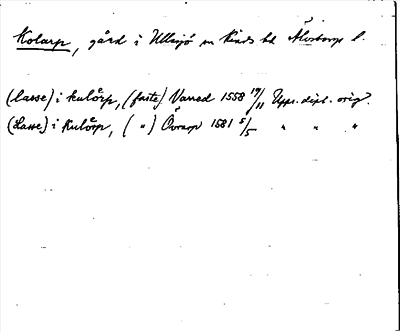 Kolarp, gård i Ullasjö sn Kinds hd Älvsborgs l.
(lasse) i kulårp, (faste) Varnad 1558 19/11 Upps. dipl. orig.
(Lasse) i Kulårp, ( " ) 1581 5/5 " " "